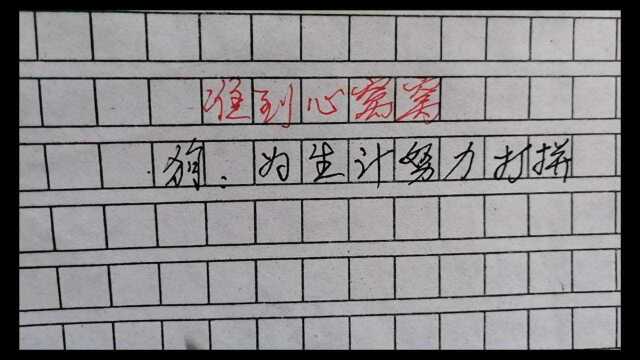 准到心窝窝
狗：为生计努力打拼